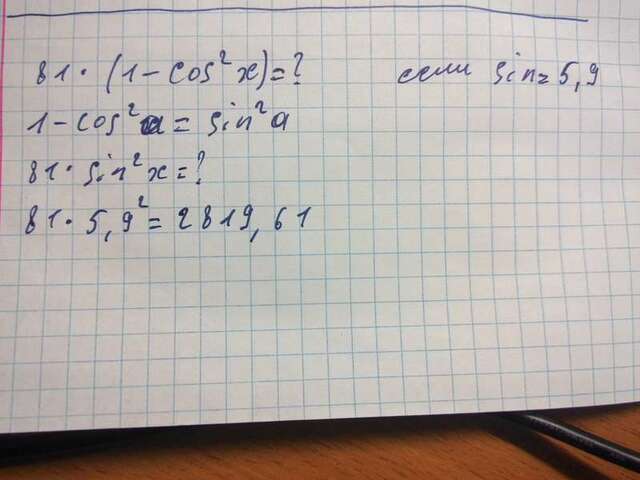 81·(1-cos²x)=? если sin=5,9
1-cos²a=sin²a
81·sin²x=?
81·5,9²=2819,61